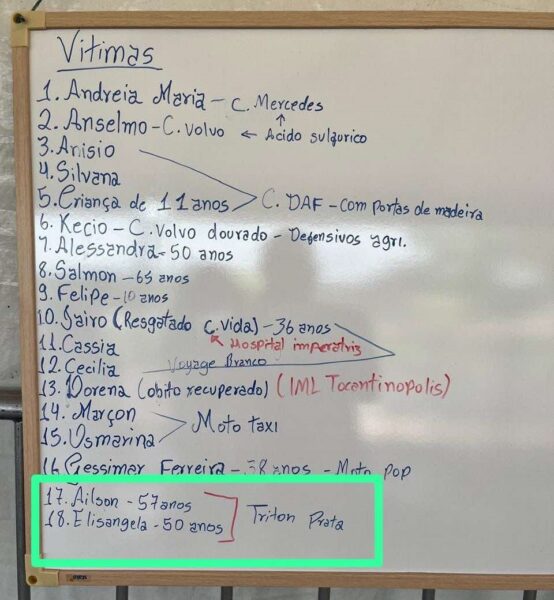 Vitimas
1. Andreia Maria - C. Mercedes
2. Anselmo - C. Volvo ← Acido sulgurico
3. Anisio
4. Silvana
5. Criança de 11 anos C. DAF - com portas de madeira
6. Kecio - C. Volvo dourado - Defensivos agri.
7. Alessandra - 50 anos
8. Salmon - 65 anos
9. Felipe - 10 anos
10. Jairo (Resgatado c. vida) - 36 anos
11. Cassia Hospital imperatriz
12. Cecilia Voyage Branco
13. Lorena (obito recuperado) (IML Tocantinopolis)
14. Marçon
15. Osmarina Moto taxi
16. Gessimar Ferreira - 38 anos - Moto pop
17. Ailson - 57 anos
18. Elisangela - 50 anos Triton Prata